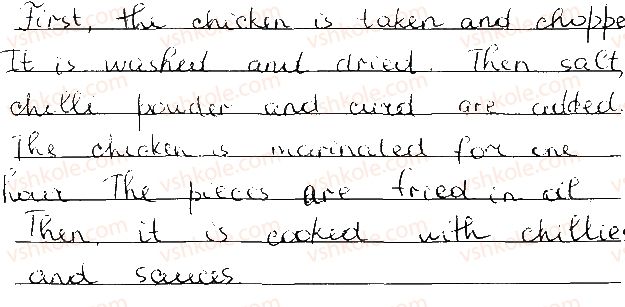 First, the chicken is taken and choppe
It is washed and dried. Then salt,
chilli powder and curd are added.
The chicken is marinated for one
hour The pieces are fried in oil
Then, it is cooked with chillie
and sauces.